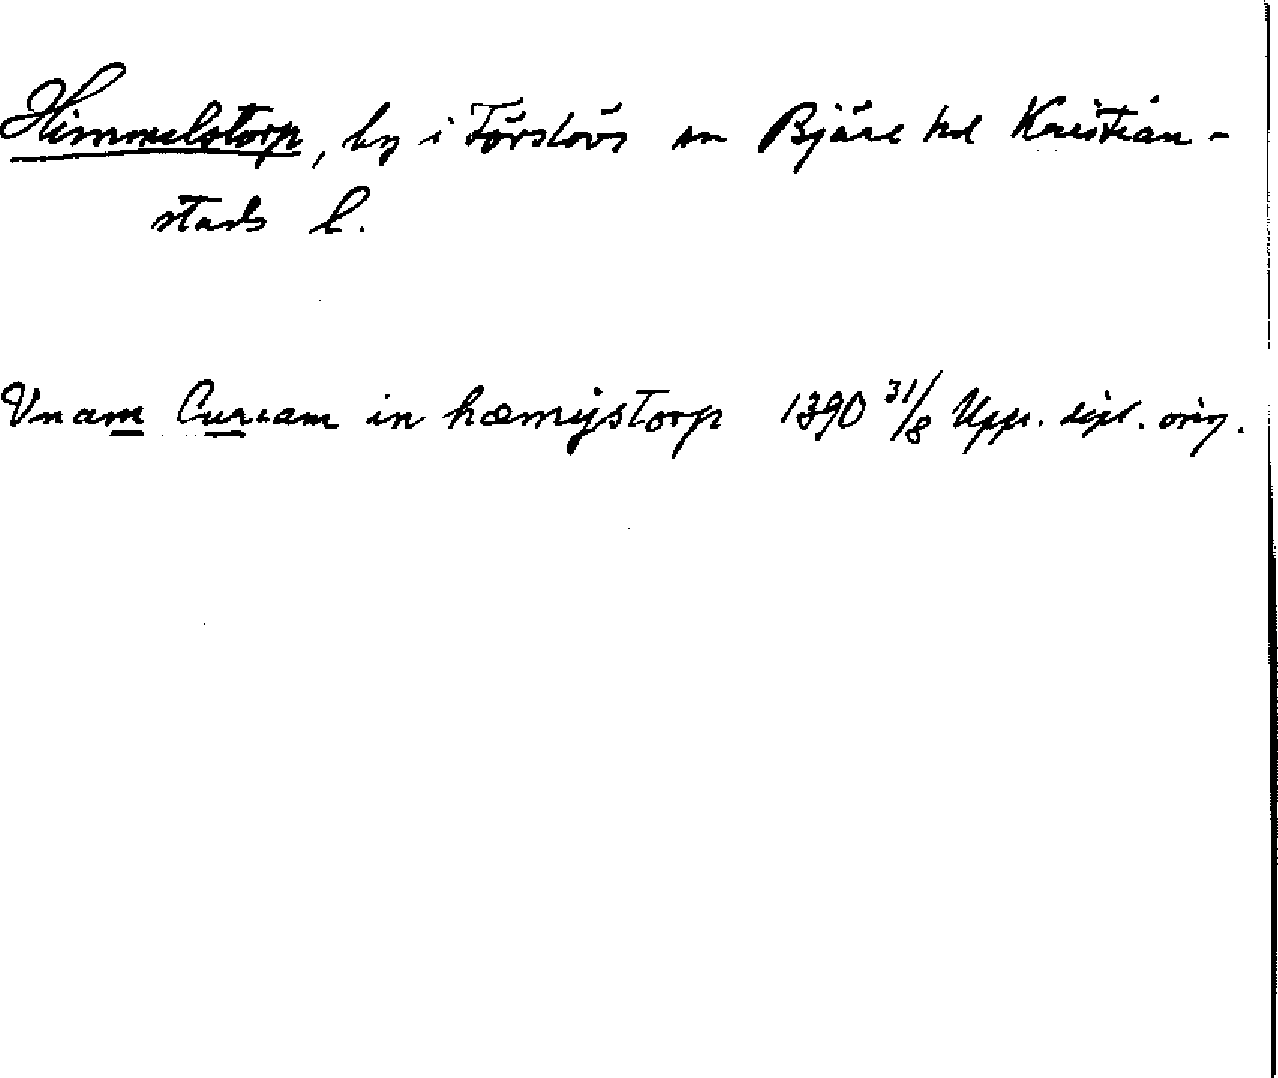 Himmelstorp, by i Förslövs sn Bjäre hd Kristian-
stads l.
Vnam Curiam in hæmijstorp 1390 31/8 Upps. dipl. orig.